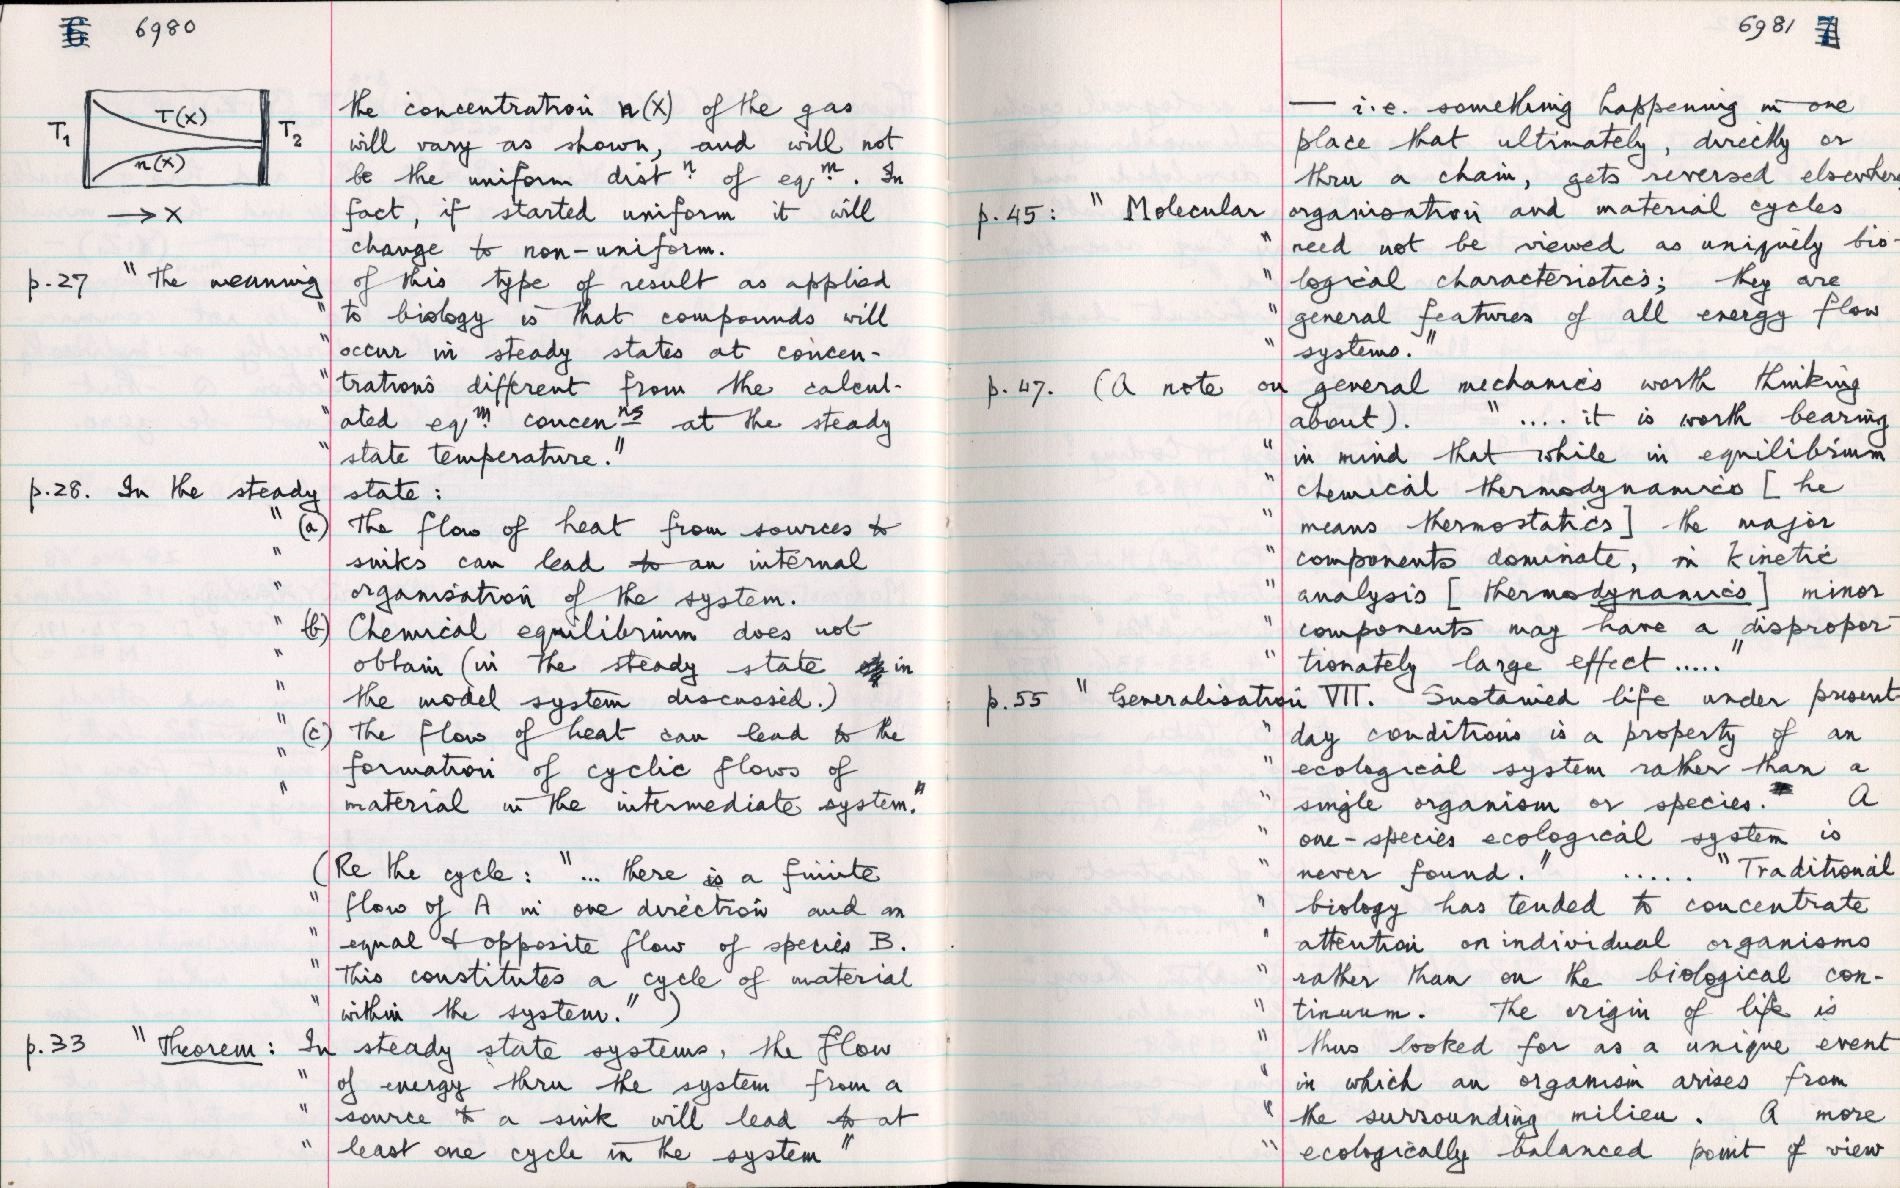 6 6980
T(x)
T₁ T₂
n(x)
→ x
the concentration n(x) of the gas
will vary as shown, and will not
be the uniform distⁿ of eqᵐ. In
fact, if started uniform it will
change to non-uniform.
p.27 " The meaning of this type of result as applied
" to biology is that compounds will
" occur in steady states at concen-
" trations different from the calcul-
" ated eqᵐ concenⁿˢ at the steady
" state temperature."
p.28. In the steady state:
" (a) The flow of heat from sources to
" sinks can lead to an internal
" organisation of the system.
" (b) Chemical equilibrium does not
" obtain (in the steady state in
" the model system discussed.)
" (c) The flow of heat can lead to the
" formation of cyclic flows of
" material in the intermediate system."
(Re the cycle: "... there is a finite
" flow of A in one direction and an
" equal & opposite flow of species B.
" This constitutes a cycle of material
" within the system." )
p.33 " Theorem: In steady state systems, the flow
" of energy thru the system from a
" source to a sink will lead to at
" least one cycle in the system "
6981 7
— i.e. something happening in one
place that ultimately, directly or
thru a chain, gets reversed elsewhere
p.45: " Molecular organisation and material cycles
" need not be viewed as uniquely bio-
" logical characteristics; they are
" general features of all energy flow
" systems."
p.47. (A note on general mechanics worth thinking
about). ".... it is worth bearing
" in mind that while in equilibrium
" chemical thermodynamics [he
" means thermostatics] the major
" components dominate, in kinetic
" analysis [thermodynamics] minor
" components may have a dispropor-
" tionately large effect ....."
p.55 " Generalisation VII. Sustained life under present-
" day conditions is a property of an
" ecological system rather than a
" single organism or species. A
" one-species ecological system is
" never found." ..... "Traditional
" biology has tended to concentrate
" attention on individual organisms
" rather than on the biological con-
" tinuum. The origin of life is
" thus looked for as a unique event
" in which an organism arises from
" the surrounding milieu. A more
" ecologically balanced point of view